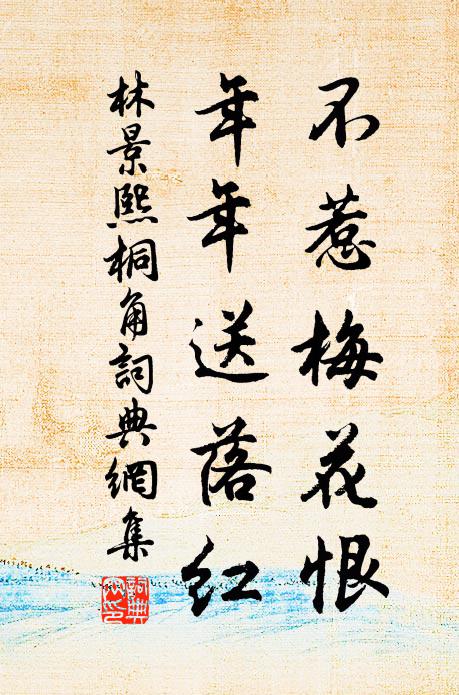 不惹梅花恨
年年送落红
林景熙桐角詞典網集